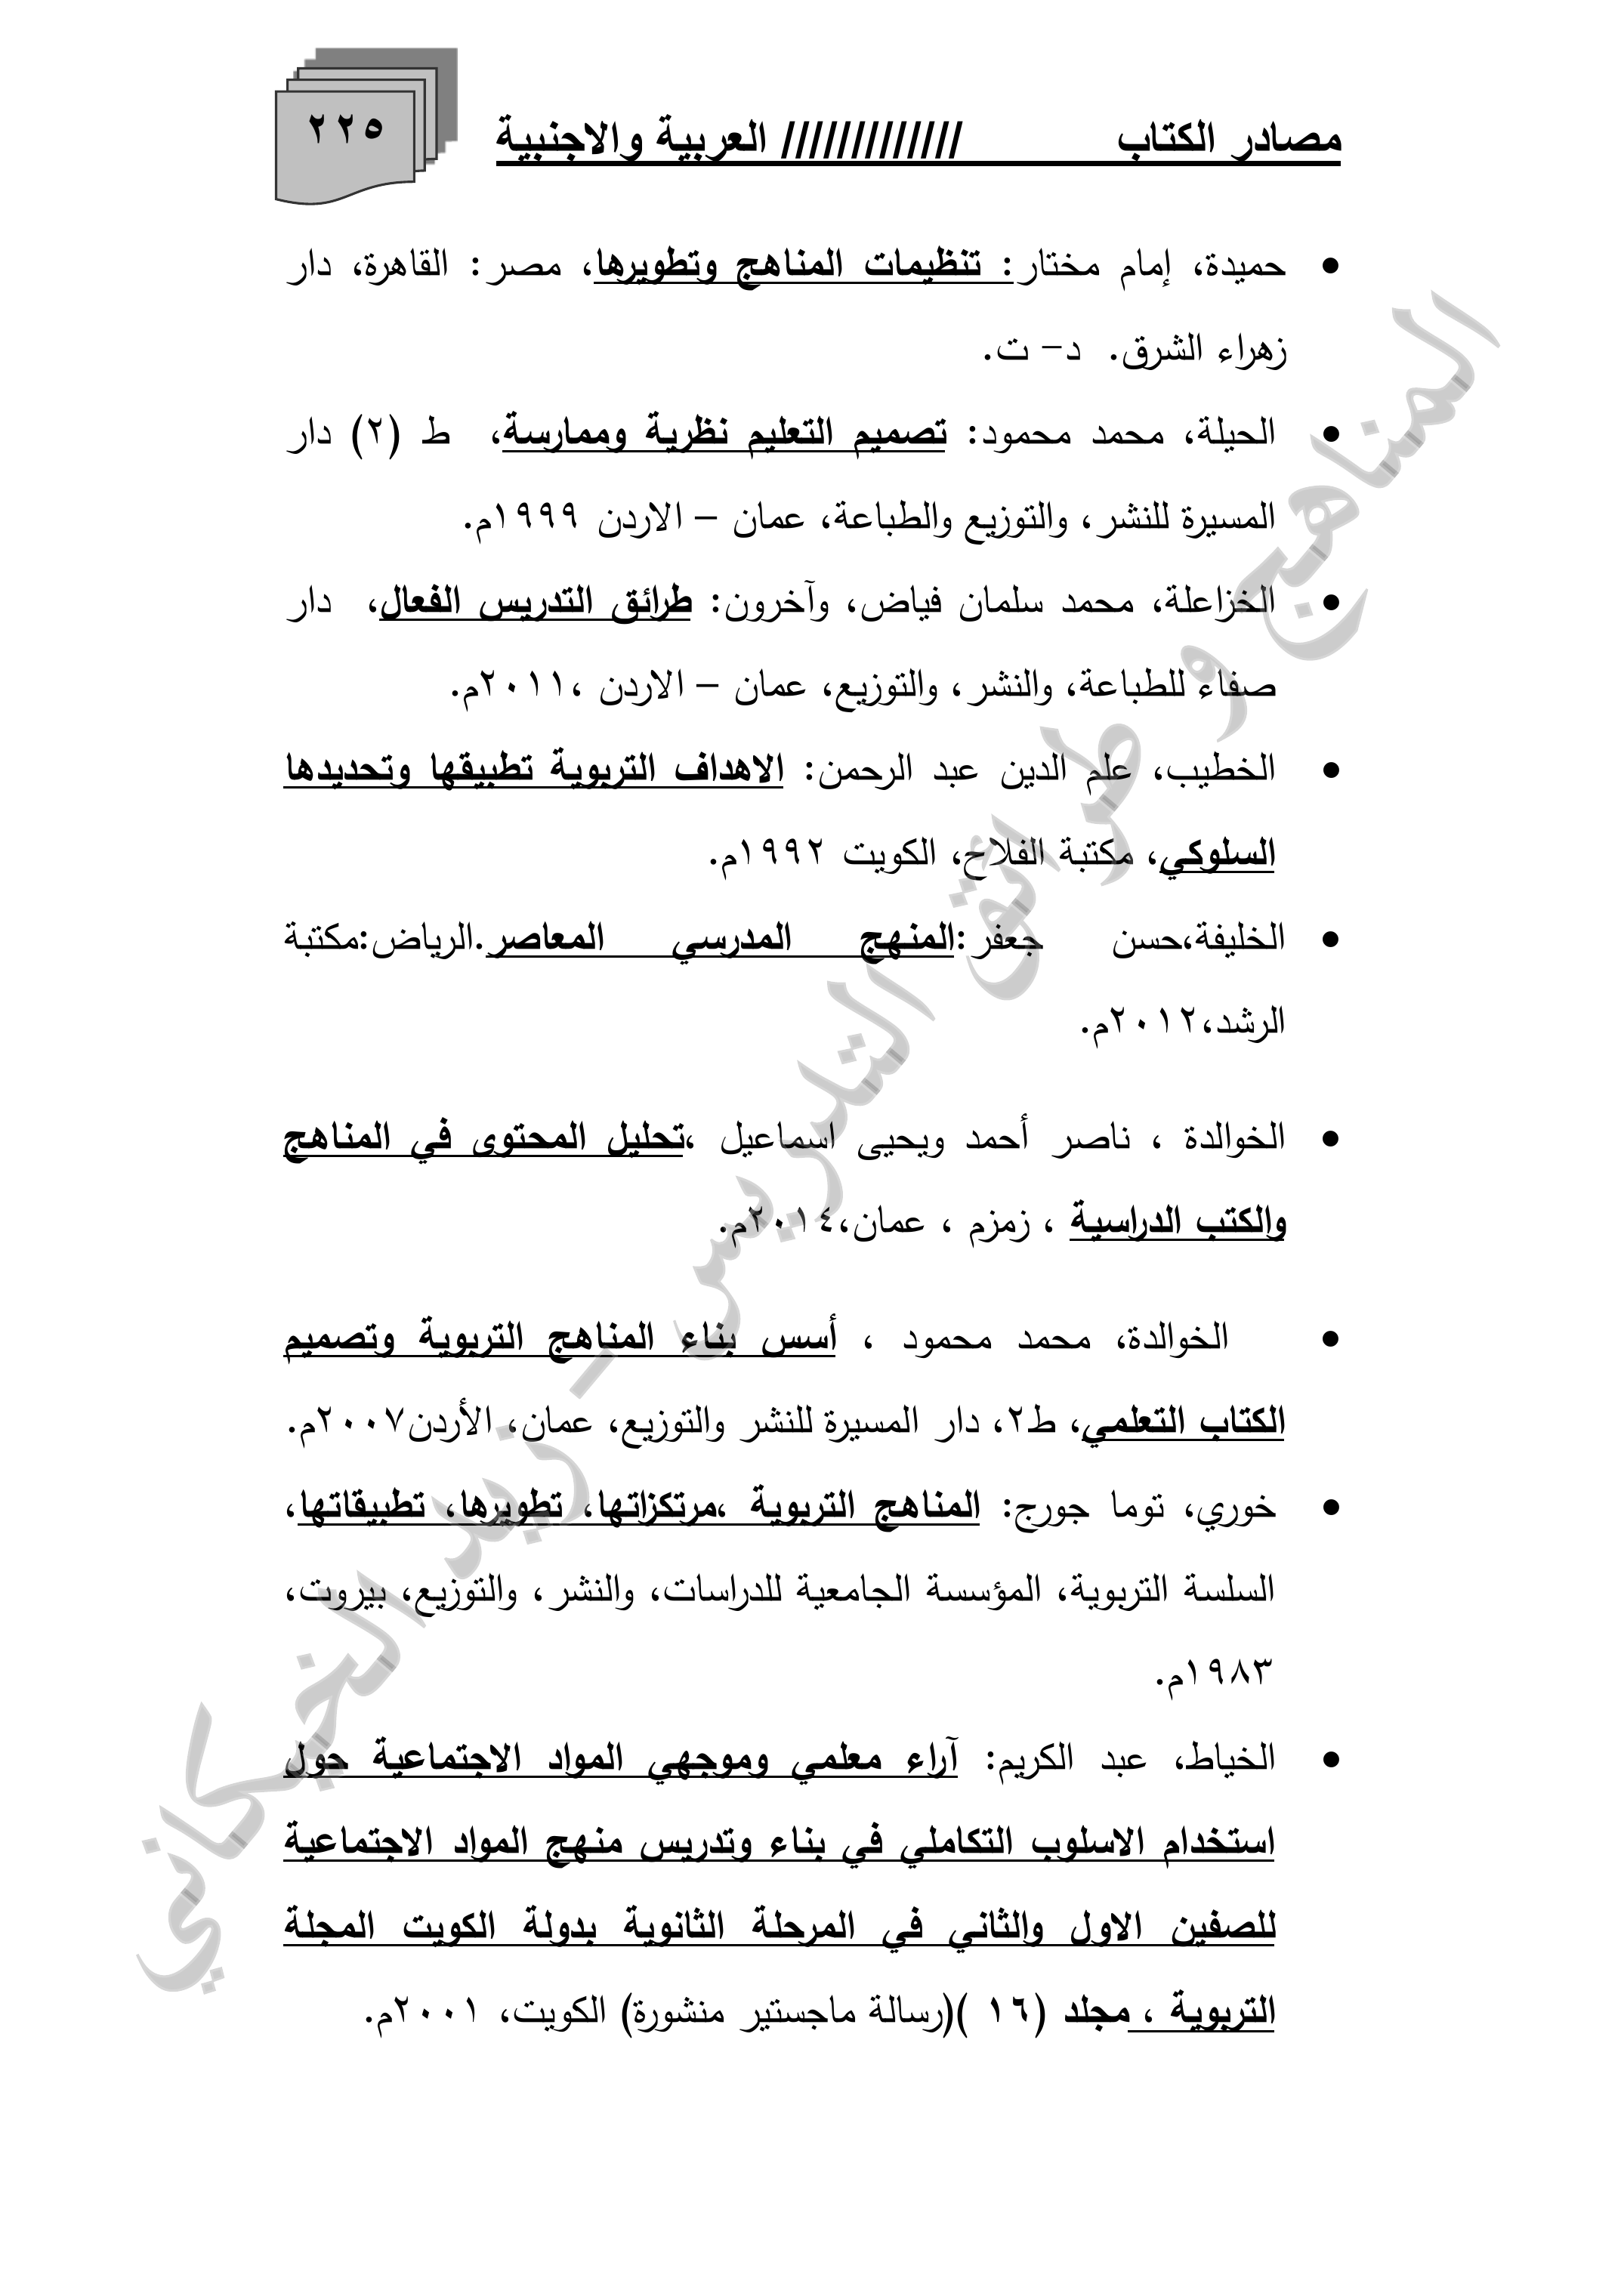 مصادر الكتاب ///////////// العربية والاجنبية
٢٢٥
• حميدة، إمام مختار: تنظيمات المناهج وتطويرها، مصر: القاهرة، دار
زهراء الشرق. د– ت.
• الحيلة، محمد محمود: تصميم التعليم نظرية وممارسة، ط (٢) دار
المسيرة للنشر، والتوزيع والطباعة، عمان – الاردن ١٩٩٩م.
• الخزاعلة، محمد سلمان فياض، وآخرون: طرائق التدريس الفعال، دار
صفاء للطباعة، والنشر، والتوزيع، عمان – الاردن ،٢٠١١م.
• الخطيب، علم الدين عبد الرحمن: الاهداف التربوية تطبيقها وتحديدها
السلوكي، مكتبة الفلاح، الكويت ١٩٩٢م.
• الخليفة،حسن جعفر:المنهج المدرسي المعاصر.الرياض:مكتبة
الرشد،٢٠١٢م.
• الخوالدة ، ناصر أحمد ويحيى اسماعيل ،تحليل المحتوى في المناهج
والكتب الدراسية ، زمزم ، عمان،٢٠١٤م.
• الخوالدة، محمد محمود ، أسس بناء المناهج التربوية وتصميم
الكتاب التعلمي، ط٢، دار المسيرة للنشر والتوزيع، عمان، الأردن٢٠٠٧م.
• خوري، توما جورج: المناهج التربوية ،مرتكزاتها، تطويرها، تطبيقاتها،
السلسة التربوية، المؤسسة الجامعية للدراسات، والنشر، والتوزيع، بيروت،
١٩٨٣م.
• الخياط، عبد الكريم: آراء معلمي وموجهي المواد الاجتماعية حول
استخدام الاسلوب التكاملي في بناء وتدريس منهج المواد الاجتماعية
للصفين الاول والثاني في المرحلة الثانوية بدولة الكويت المجلة
التربوية ، مجلد (١٦ )(رسالة ماجستير منشورة) الكويت، ٢٠٠١م.
المناهج و طرائق التدريس - زيد الخيكاني